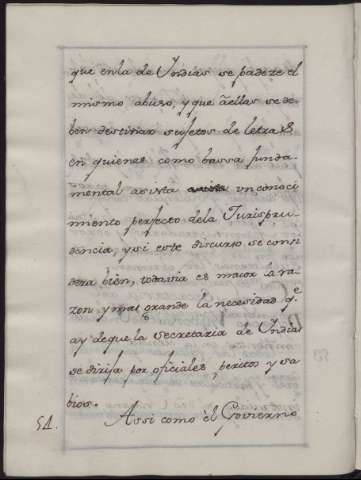 que enla de Yndias se padeze el
mismo abuso, y que â ellas se de-
ben destinar sujetos de letras,
en quienes como bassa funda-
mental asista un conoci-
miento perfecto dela Jurispru-
dencia, y si este discurso se consi-
dera bien, todavia es maior la ra-
zon y mas grande la necesidad q.e
ay de que la secretaria de Yndias
se dirija por oficiales peritos y sa-
bios.
54. Assi como êl Govierno